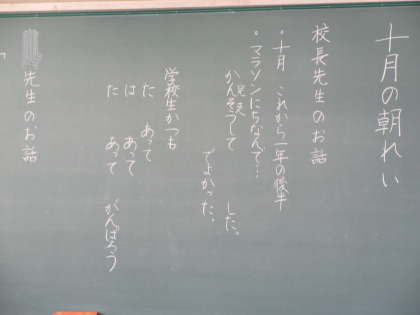 十月の朝れい
校長先生のお話
・十月 これから一年の後半
・マラソンにちなんで…
かんそうして した。
でよかった。
学校生かつも
た あって
は あって
た あって がんばろう
先生のお話
「